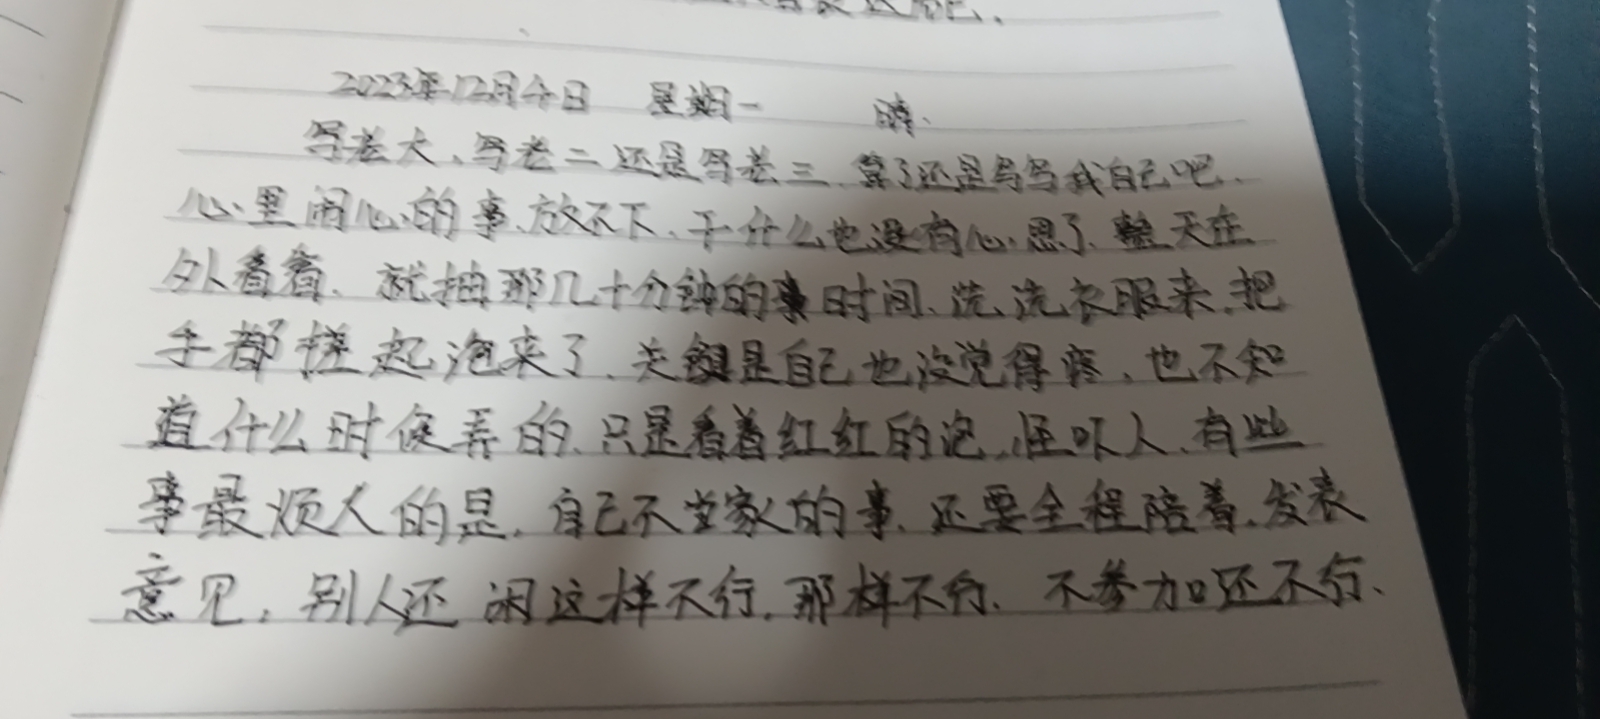 2023年12月4日 星期一 晴、
写老大、写老二还是写老三、算了还是写写我自己吧、
心里闹心的事、放不下、干什么也没有心思了、整天在
外看着、就抽那几十分钟的事时间、洗洗衣服来、把
手都搓起泡来了、关键是自己也没觉得疼、也不知
道什么时候弄的、只是看着红红的泡、怪吓人、有些
事最烦人的是、自己不当家的事、还要全程陪着、发表
意见、别人还闲这样不行、那样不行、不参加还不行、